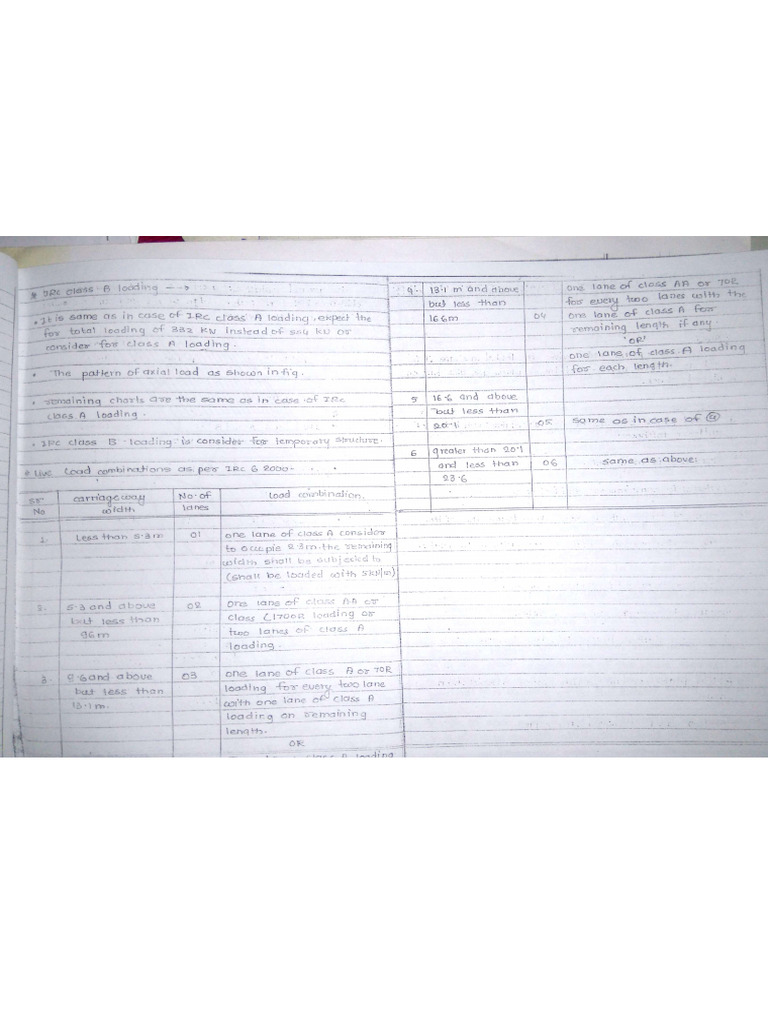 * IRC class B loading →
• It is same as in case of IRC class A loading, expect the
for total loading of 332 KN instead of 554 KN or
consider for class A loading.
• The pattern of axial load as shown in fig.
• remaining charts are the same as in case of IRC
class A loading.
• IRC class B loading is consider for temporary structure.
• Live Load combinations as per IRC 6 2000-
Sr. No | carriageway width | No. of lanes | Load combination.
1. | Less than 5.3m | 01 | one lane of class A consider
to occupie 2.3m. the remaining
width shall be subjected to
(shall be loaded with 5kN/m)
2. | 5.3 and above | 02 | one lane of class AA or
but less than | class (170R loading or
96m | two lanes of class A
loading.
3. | 9.6 and above | 03 | one lane of class A or 70R
but less than | loading for every two lane
13.1m. | with one lane of class A
loading on remaining
length.
OR
class A loading
4. | 13.1 m and above | one lane of class AA or 70R
but less than | for every two lanes with the
166m | 04 | one lane of class A for
remaining length if any
'OR'
one lane of class A loading
for each length.
5 | 16.6 and above
but less than
20.1 | 05 | same as in case of ④
6 | greater than 20.1
and less than | 06 | same as above.
23.6